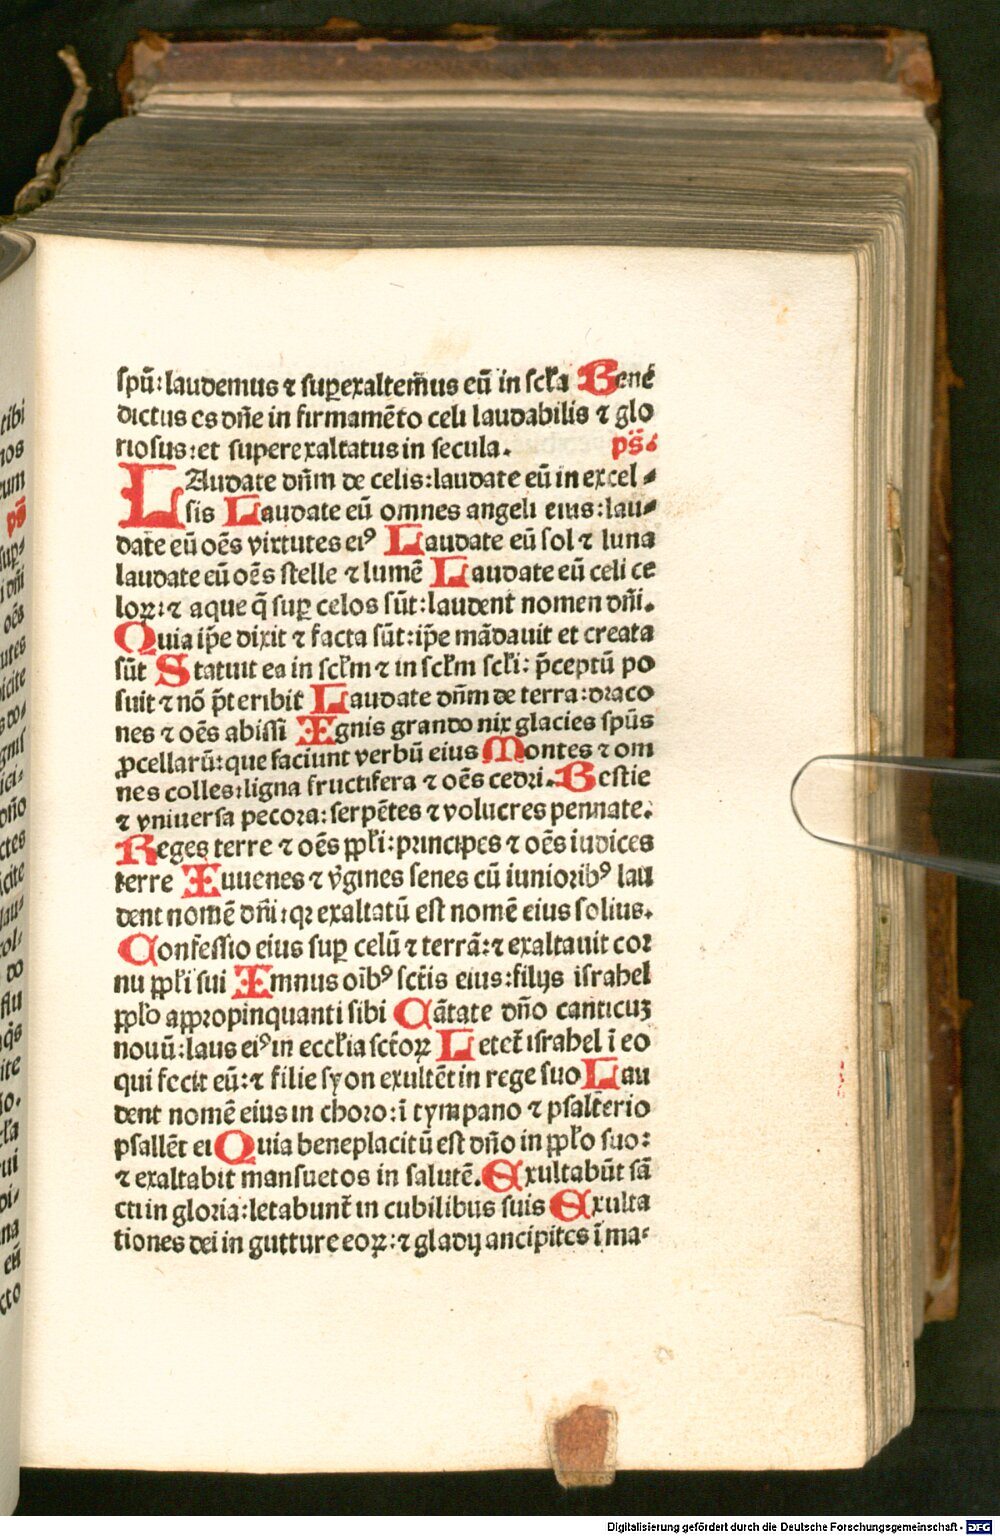 spū: laudemus ⁊ suꝑexaltem̄us eū in scl̄a Bene
dictus es dn̄e in firmamēto celi laudabilis ⁊ glo
riosus: et superexaltatus in secula. ps̄.
LAudate dn̄m de celis: laudate eū in excel-
sis Laudate eū omnes angeli eius: lau-
date eū oēs virtutes eiꝰ Laudate eū sol ⁊ luna
laudate eū oēs stelle ⁊ lumē Laudate eū celi ce
loꝝ: ⁊ aque q̄ suꝑ celos sūt: laudent nomen dn̄i.
Quia ip̄e dixit ⁊ facta sūt: ip̄e mādauit et creata
sūt Statuit ea in scl̄m ⁊ in scl̄m scl̄i: p̄ceptū po
suit ⁊ nō p̄teribit Laudate dn̄m de terra: draco
nes ⁊ oēs abissi Ignis grando nix glacies spūs
ꝓcellarū: que faciunt verbū eius Montes ⁊ om
nes colles: ligna fructifera ⁊ oēs cedri. Bestie
⁊ vniuersa pecora: serpētes ⁊ volucres pennate.
Reges terre ⁊ oēs ppl̄i: principes ⁊ oēs iudices
terre Iuuenes ⁊ v̄gines senes cū iunioribꝰ lau
dent nomē dn̄i: qꝛ exaltatū est nomē eius solius.
Confessio eius suꝑ celū ⁊ terrā: ⁊ exaltauit cor
nu ppl̄i sui Imnus oībꝰ sct̄is eius: filijs israhel
ppl̄o appropinquanti sibi Cātate dn̄o canticuꝫ
nouū: laus eiꝰ in eccl̄ia sct̄oꝝ Letet̄ israhel ī eo
qui fecit eū: ⁊ filie syon exultēt in rege suo Lau
dent nomē eius in choro: ī tympano ⁊ psalterio
psallēt ei Quia beneplacitū est dn̄o in ppl̄o suo:
⁊ exaltabit mansuetos in salutē. Exultabūt sā
cti in gloria: letabunt̄ in cubilibus suis Exulta
tiones dei in gutture eoꝝ: ⁊ gladij ancipites ī ma-
Digitalisierung gefördert durch die Deutsche Forschungsgemeinschaft - DFG